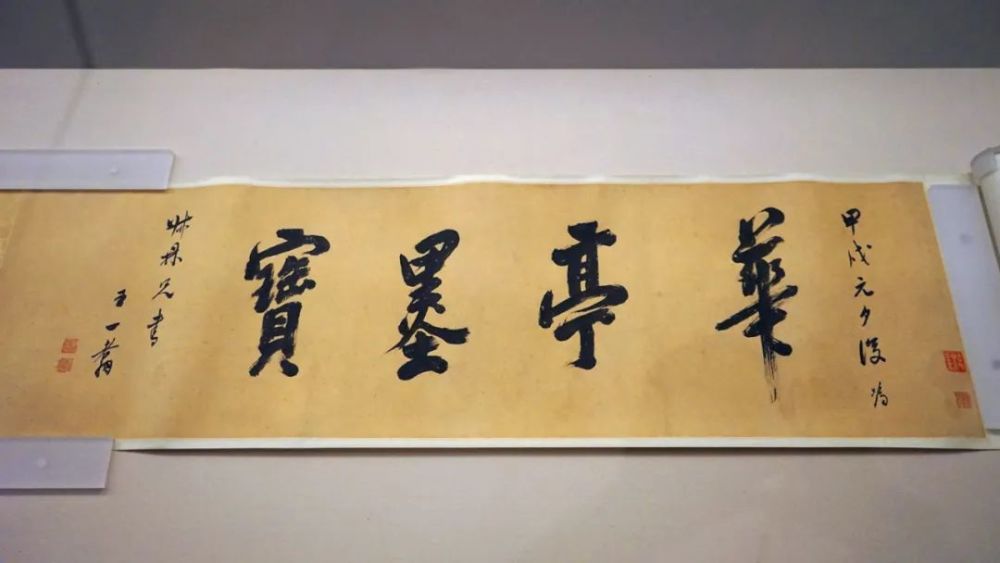 甲戌元夕後為
華亭墨寶
兄書
王一鵬